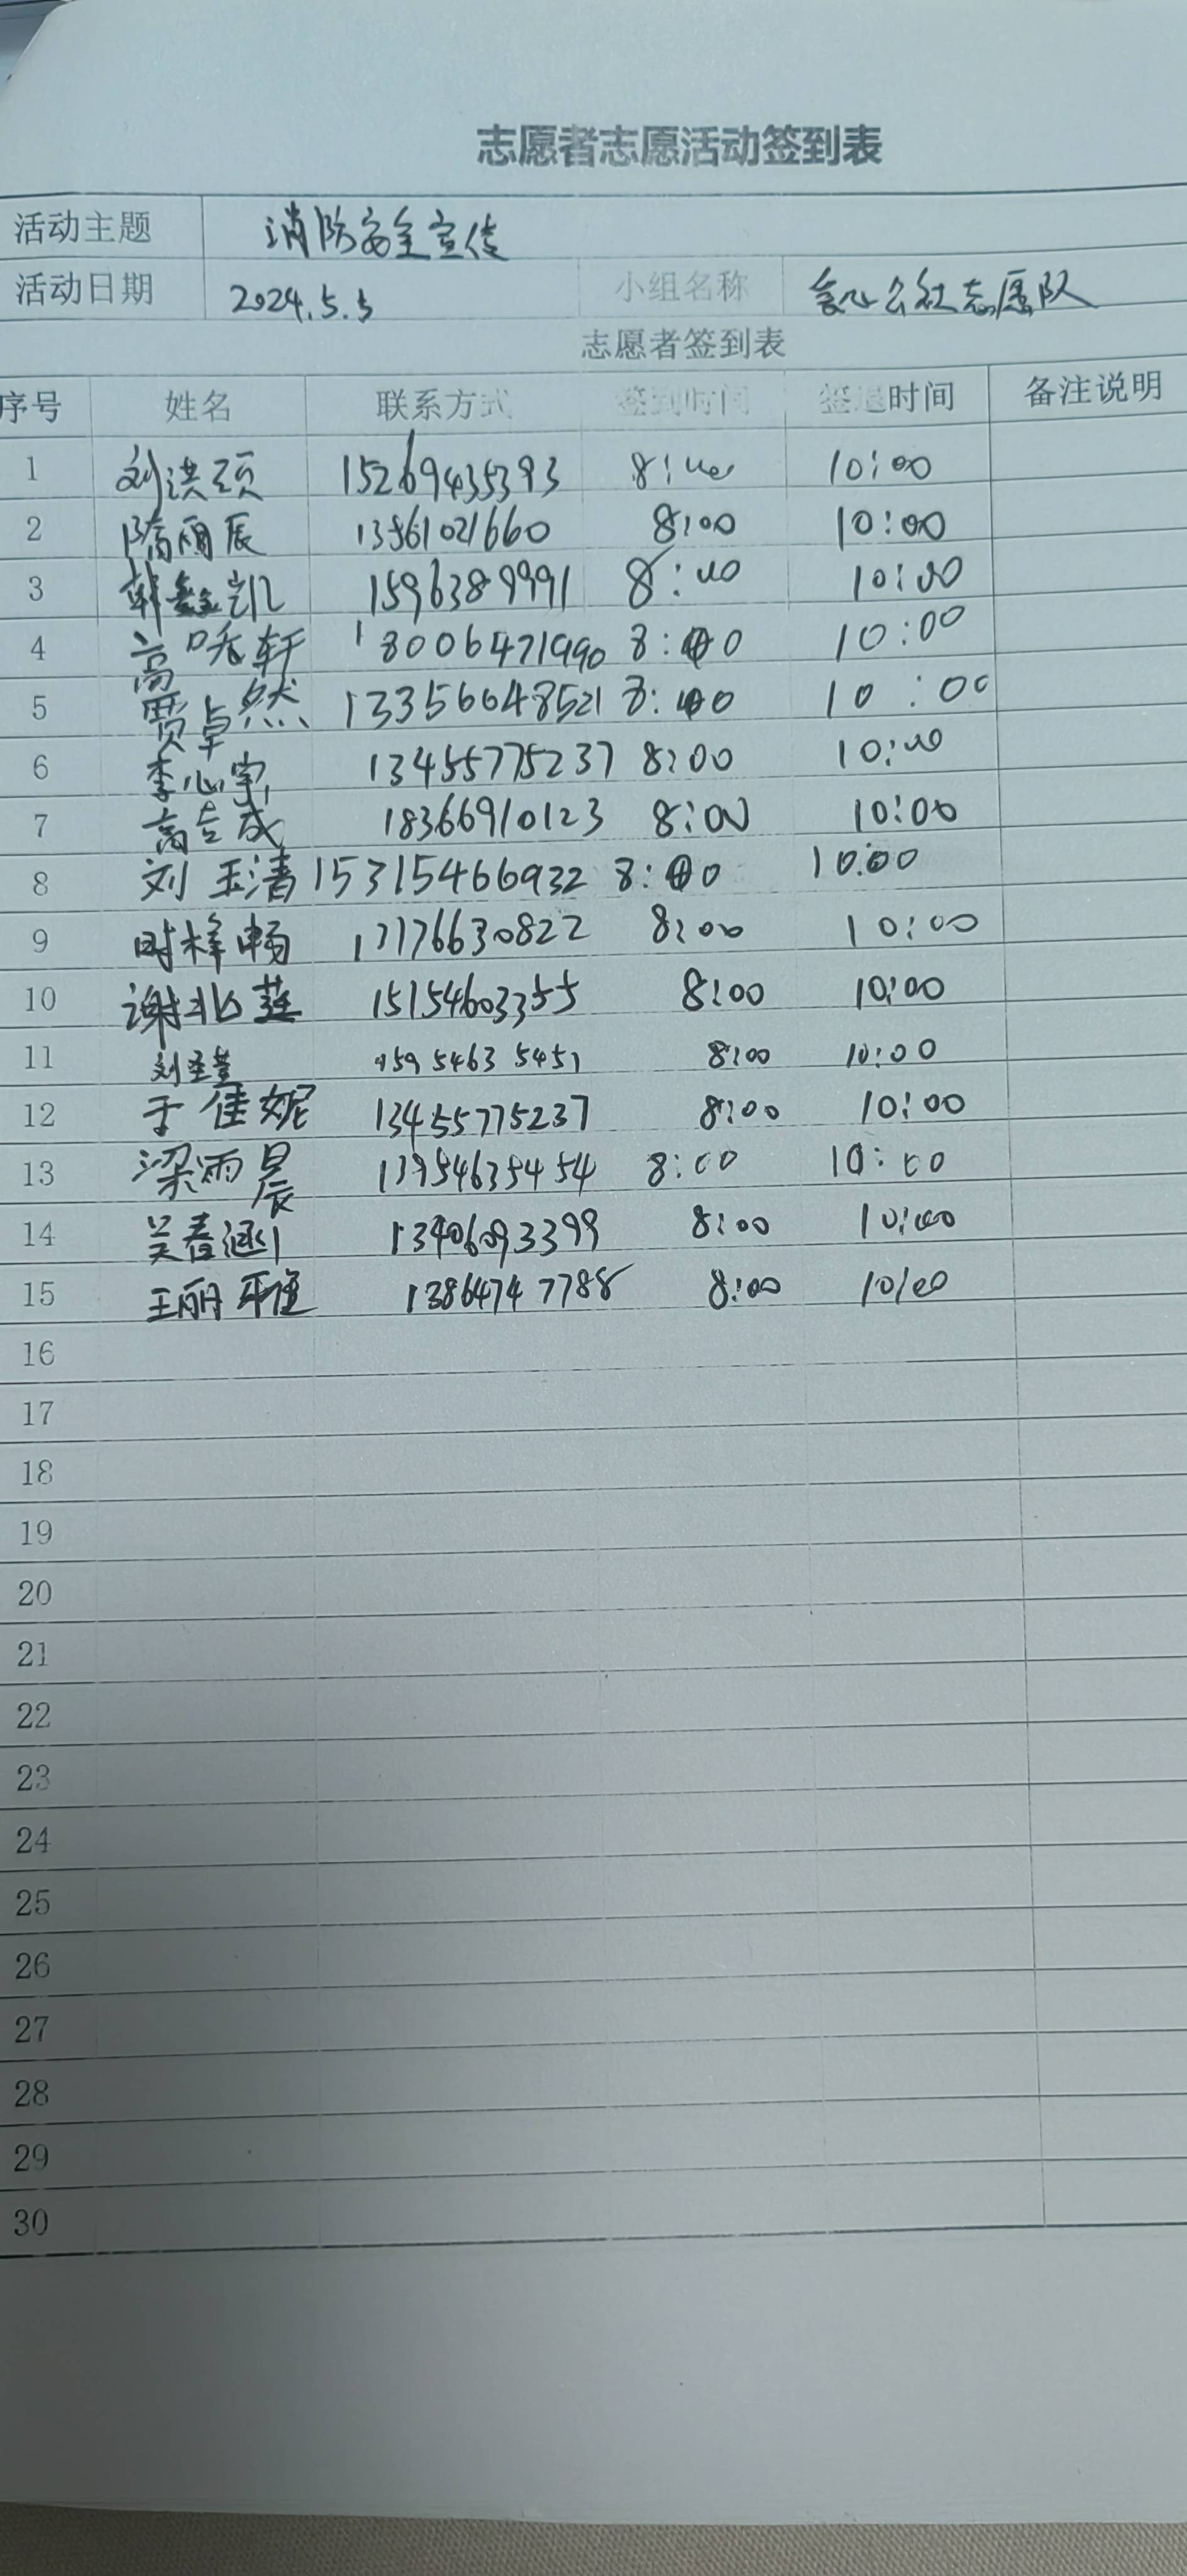 志愿者志愿活动签到表
活动主题 消防安全宣传
活动日期 2024.5.5 小组名称 公社志愿队
志愿者签到表
序号 姓名 联系方式 签到时间 签退时间 备注说明
1 刘洪硕 15269435393 8:00 10:00
2 隋雨辰 13561021660 8:00 10:00
3 韩鑫凯 1596389991 8:00 10:00
4 高 轩 18006471990 8:00 10:00
5 贾卓然 13356648521 8:00 10:00
6 李心宇 13455775237 8:00 10:00
7 高 成 18366910123 8:00 10:00
8 刘玉清 15315466932 8:00 10:00
9 时梓畅 17176630822 8:00 10:00
10 谢 15154603355 8:00 10:00
11 刘 15954635451 8:00 10:00
12 于佳妮 13455775237 8:00 10:00
13 梁雨晨 13954635454 8:00 10:00
14 吴春涵 13406093399 8:00 10:00
15 王丽雅 13864747788 8:00 10:00
16
17
18
19
20
21
22
23
24
25
26
27
28
29
30